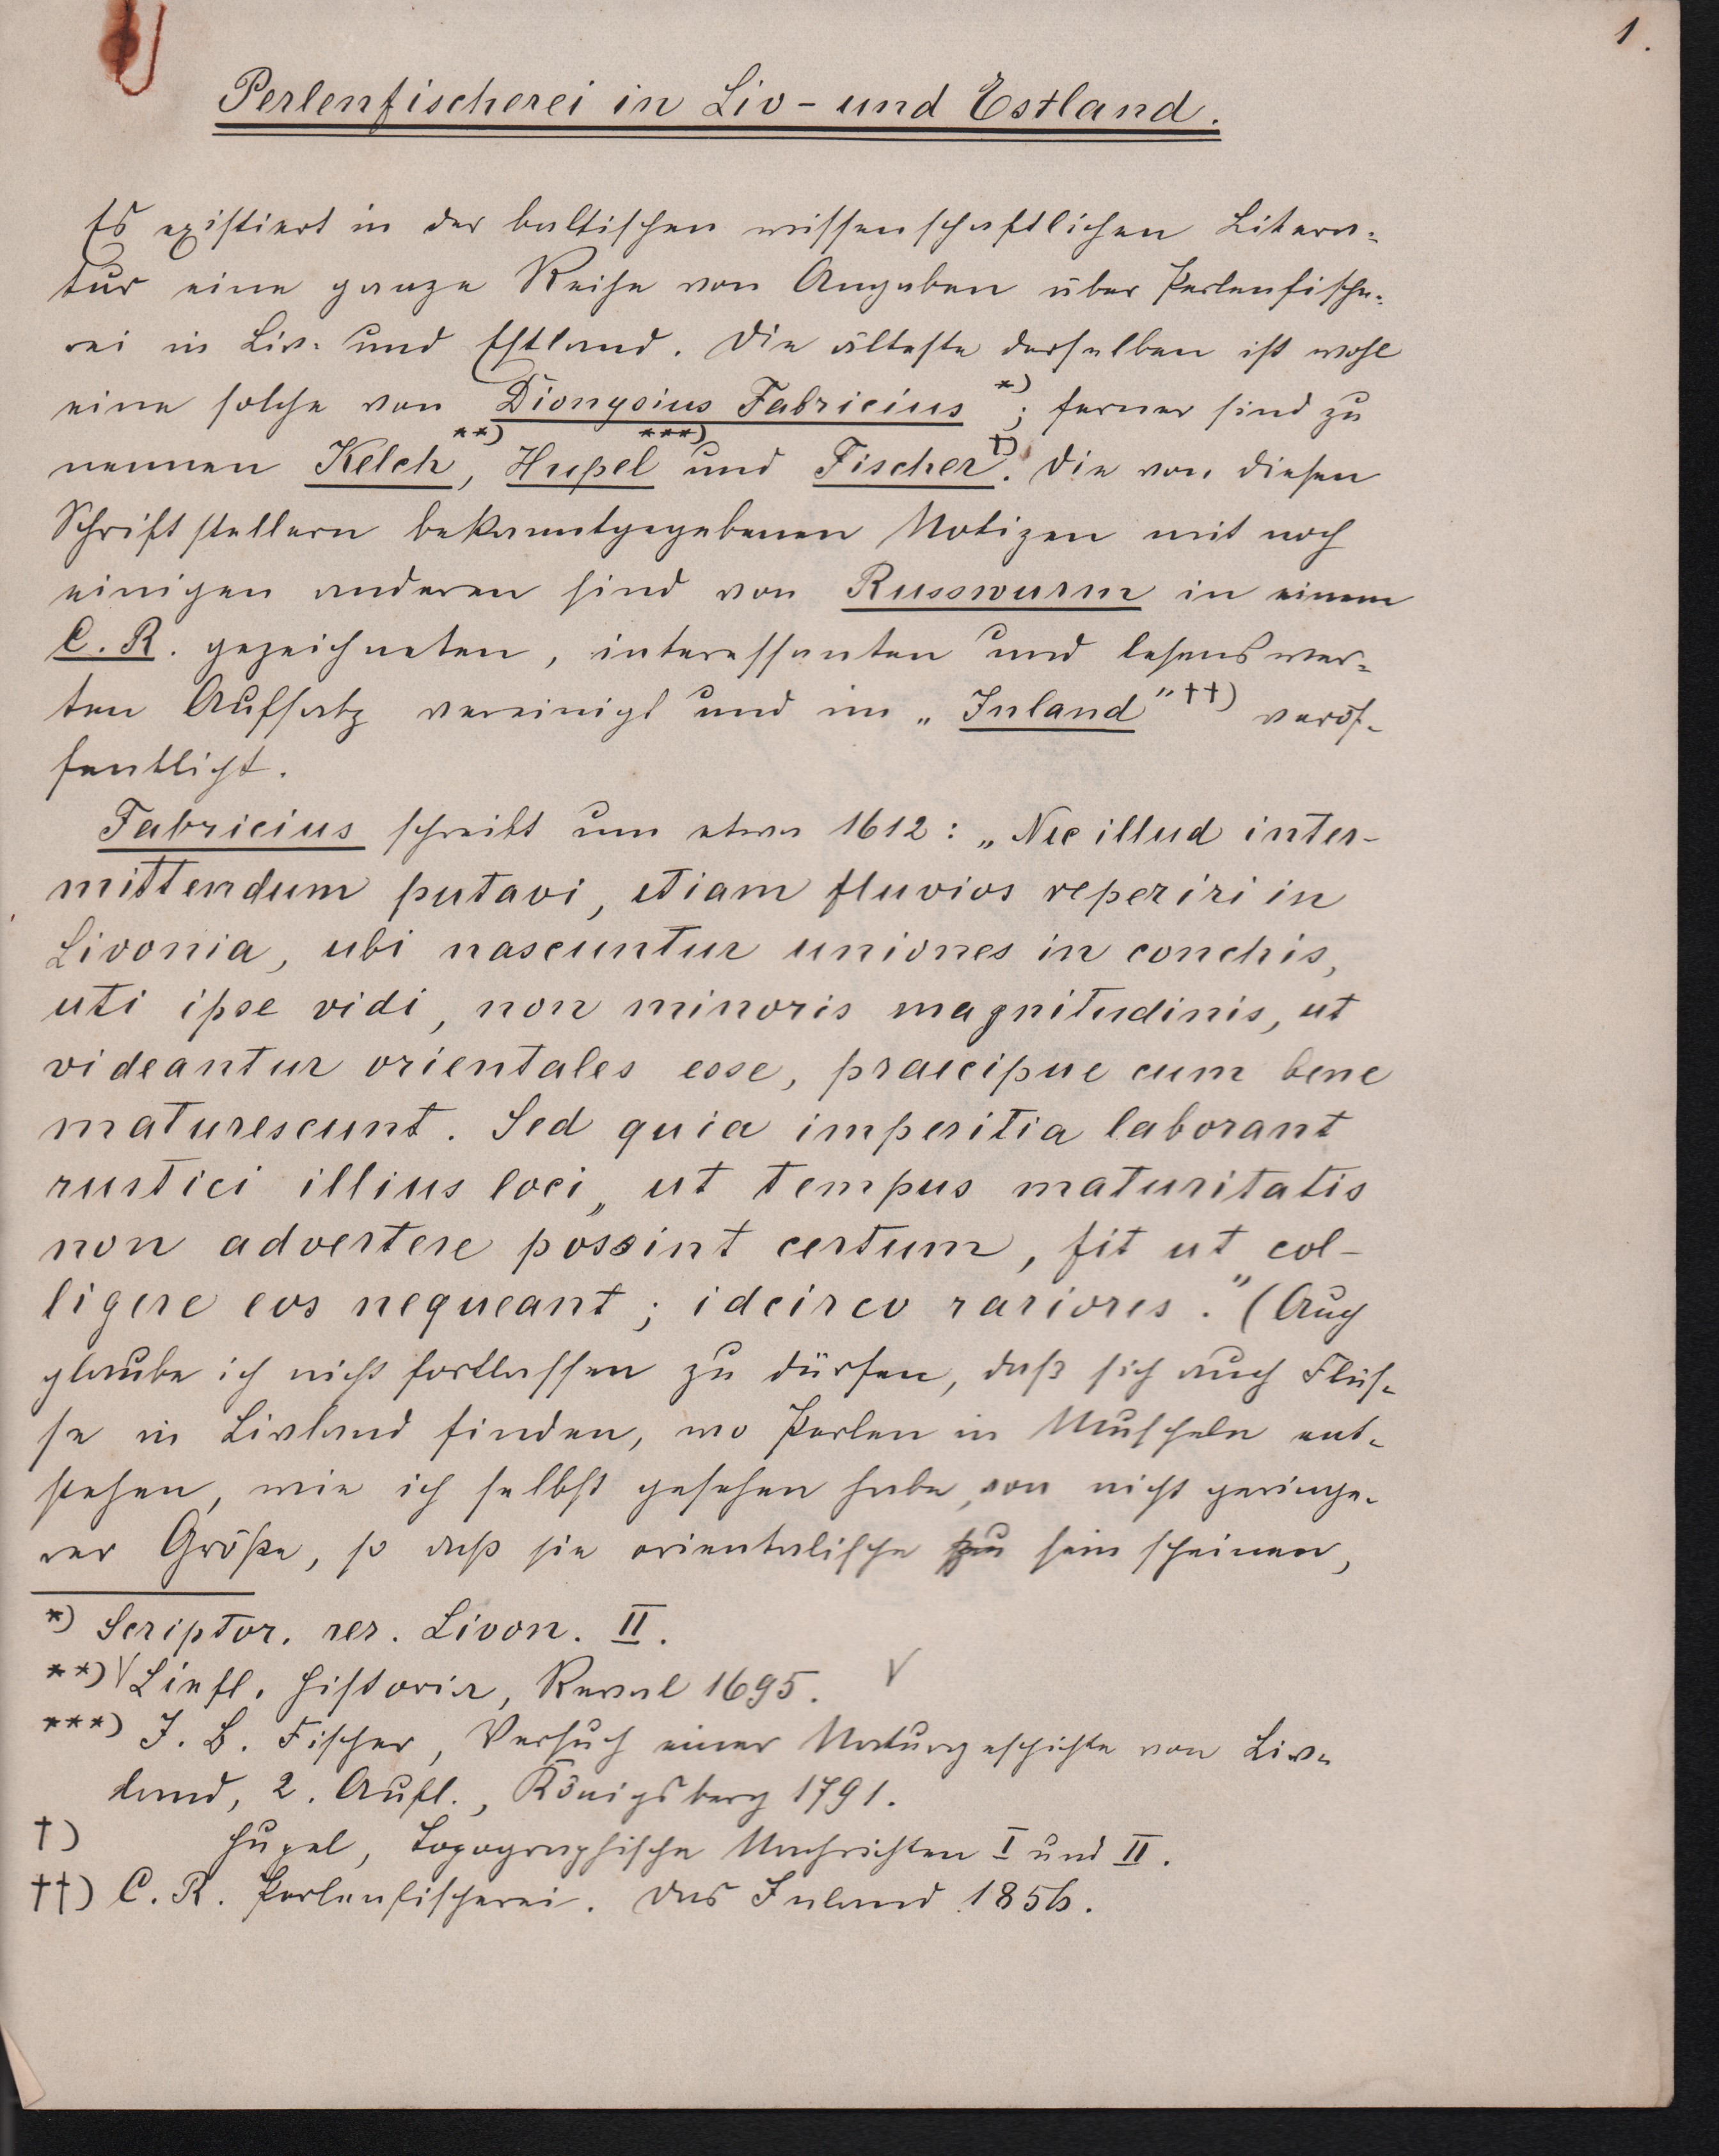 1.
Perlenfischerei in Liv- und Estland.
Es existiert in der baltischen wissenschaftlichen Litera-
tur eine ganze Reihe von Angaben über Perlenfische-
rei in Liv- und Estland. Die älteste derselben ist wohl
eine solche von Dionysius Fabricius *); ferner sind zu
nennen Kelch **), Hupel ***) und Fischer †). Die von diesen
Schriftstellern bekanntgegebenen Notizen mit noch
einigen anderen sind von Russwurm in einem
C. R. gezeichneten, interessanten und lesenswer-
ten Aufsatz vereinigt und im „Inland" ††) veröf-
fentlicht.
Fabricius schreibt um etwa 1612: „Nec illud inter-
mittendum putavi, etiam fluvios reperiri in
Livonia, ubi nascuntur uniones in conchis,
uti ipse vidi, non minoris magnitudinis, ut
videantur orientales esse, praecipue cum bene
maturescunt. Sed quia imperitia laborant
rustici illius loci, ut tempus maturitatis
non advertere possint certum, fit ut col-
ligere eos nequeant; idcirco rariores." (Auch
glaube ich nicht fortlassen zu dürfen, daß sich auch Flüs-
se in Livland finden, wo Perlen in Muscheln ent-
stehen, wie ich selbst gesehen habe, von nicht geringe-
rer Größe, so daß sie orientalische zu sein scheinen,
*) Scriptor. rer. Livon. II.
**) √ Liefl. Historia, Reval 1695. √
***) J. B. Fischer, Versuch einer Naturgeschichte von Liv-
land, 2. Aufl., Königsberg 1791.
†) Hupel, Topographische Nachrichten I und II.
††) C. R. Perlenfischerei. Das Inland 1856.